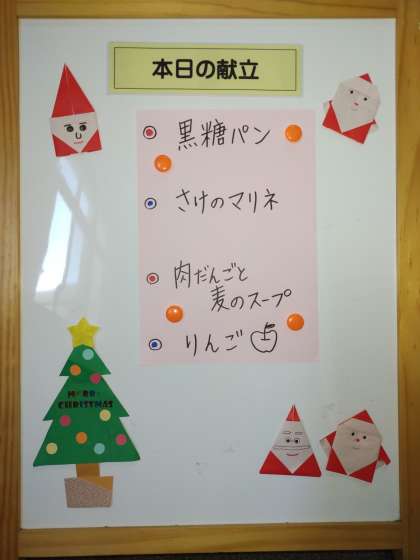 本日の献立
黒糖パン
さけのマリネ
肉だんごと
麦のスープ
りんご
MERRY
CHRISTMAS